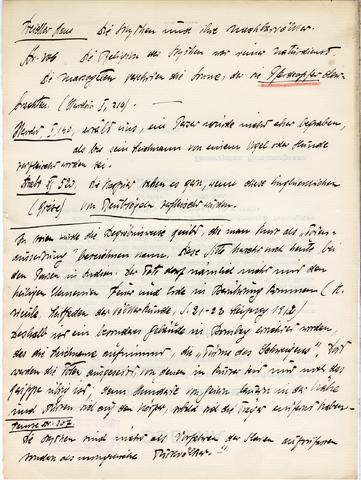 Treidler Hans Die Skythen und ihre Nachbarvölker.
Die Religion der Skythen war reiner Naturdienst
Die Massageten verehrten die Sonne, der sie Pferdeopfer dar-
brachten. (Herodot I, 216)
Herodot I, 140, erzählt uns, ein Perser würde nicht eher begraben,
als bis sein Leichnam von einem Vogel oder Hunde
zerfleischt worden sei.
Strabo 520. Die Kaspier sahen es gern, wenn diese
(Greise) von Raubvögeln zerfleischt würden.
In Iran wurde die Begräbnisweise geübt, die man kurz als „Toten-
aussetzung" bezeichnen kann. Diese Sitte herrscht noch heute bei
den Parsen in Indien. Der Tote darf nämlich nicht mit den
heiligen Elementen Feuer und Erde in Berührung kommen (K.
Weule, Leitfaden der Völkerkunde, S. 21-23 Leipzig 1912)
Deshalb ist ein besonderes Gebäude in Bombay errichtet worden,
das die Leichname aufnimmt, die „Türme des Schweigens", dort
werden die Toten ausgesetzt, von denen in kurzer Zeit nur noch das
Gerippe übrig ist, denn Hunderte von Geiern lauern in der Nähe
und stürzen sich auf den Körper, sobald sich die Träger entfernt haben.
Die Skythen sind nicht als Vorfahren der Slaven aufzufassen
sondern als mongolische Türkvölker."